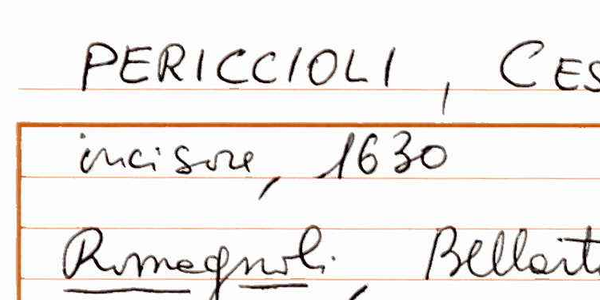 PERICCIOLI, CES
incisore, 1630
Romagnoli, Bellart